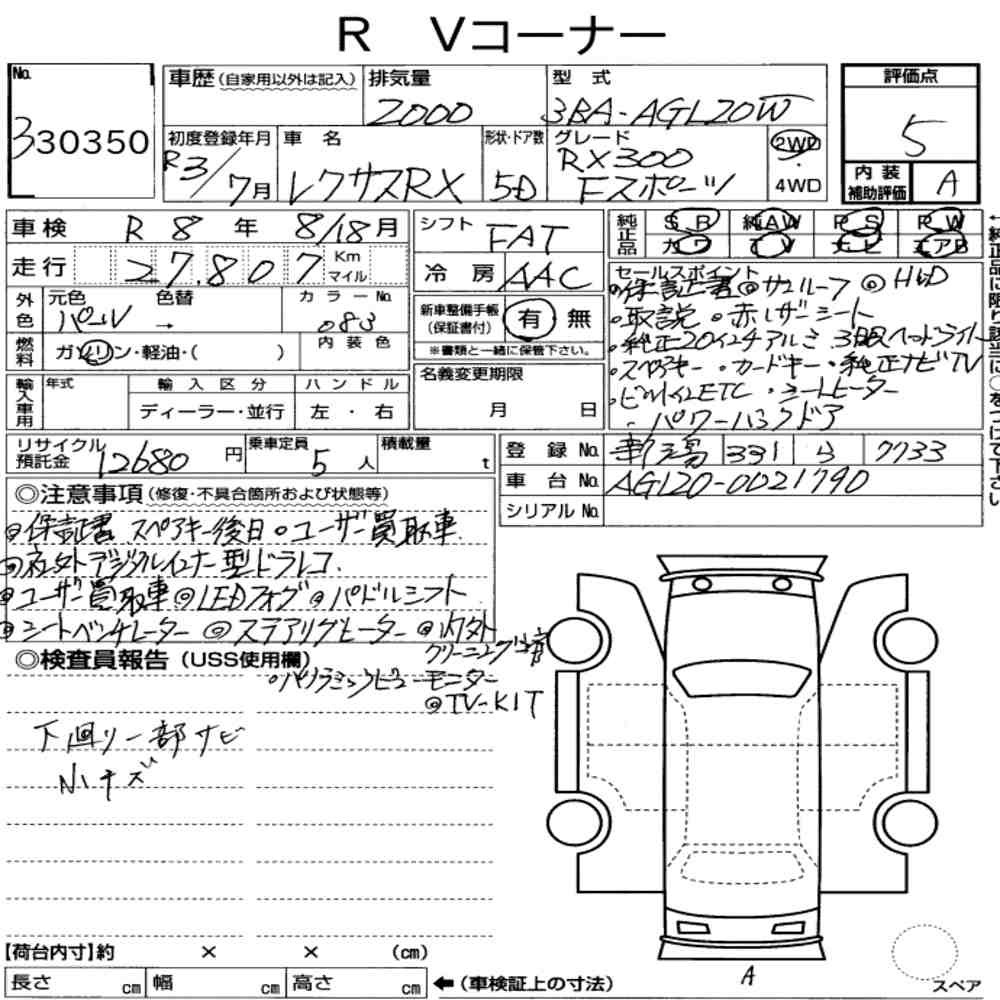 R Vコーナー
No. 330350
車歴(自家用以外は記入) 排気量 2000 型式 3BA-AGL20W
評価点 5
初度登録年月 R3/7月 車名 レクサスRX 形状・ドア数 5D グレード RX300 Fスポーツ 2WD・4WD
内装補助評価 A
車検 R 8 年 8/18月
走行 27,807 Km マイル
外色 元色 パール 色替 → カラーNo. 083
燃料 ガソリン・軽油・( ) 内装色
輸入車用 年式 輸入区分 ディーラー・並行 ハンドル 左・右
シフト FAT
冷房 AAC
新車整備手帳(保証書付) 有 無
※書類と一緒に保管下さい。
名義変更期限 月 日
純正品 SR 純AW PS PW
カワ TV ナビ エアB
←純正品に限り該当に○をつけて下さい
セールスポイント
・保証書◎サンルーフ ◎HUD
・取説 ・赤レザーシート
・純正20インチアルミ 3眼ヘッドライト
・スペアキー・カードキー・純正ナビTV
・ビルトインETC ・シートヒーター
・パワーバックドア
リサイクル預託金 12680 円 乗車定員 5 人 積載量 t
登録No. 新潟 331 7733
車台No. AGL20-0021790
シリアルNo.
◎注意事項(修復・不具合箇所および状態等)
◎保証書 スペアキー後日 ◎ユーザー買取車
◎社外デジタルインナー型ドラレコ
◎ユーザー買取車 ◎LEDフォグ ◎パドルシフト
◎シートベンチレーター ◎ステアリングヒーター ◎内外
クリーニング済
◎検査員報告(USS使用欄)
・パノラミックビューモニター
◎TV-KIT
下廻り一部サビ
小キズ
【荷台内寸】約 × × (cm)
長さ cm 幅 cm 高さ cm ←(車検証上の寸法)
A
スペア